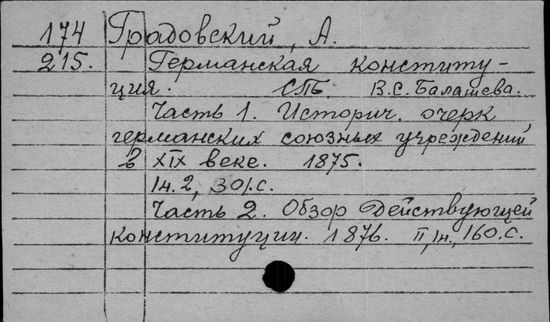 174 Градовский, А.
215. Германская конститу-
ция. СПБ. В.С. Балашева.
Часть 1. Историч. очерк
германских союзных учреждений
в XIX веке. 1875.
1н. 2, 301 с.
Часть 2. Обзор Действующей
конституции. 1876. II, 1н., 160. с.